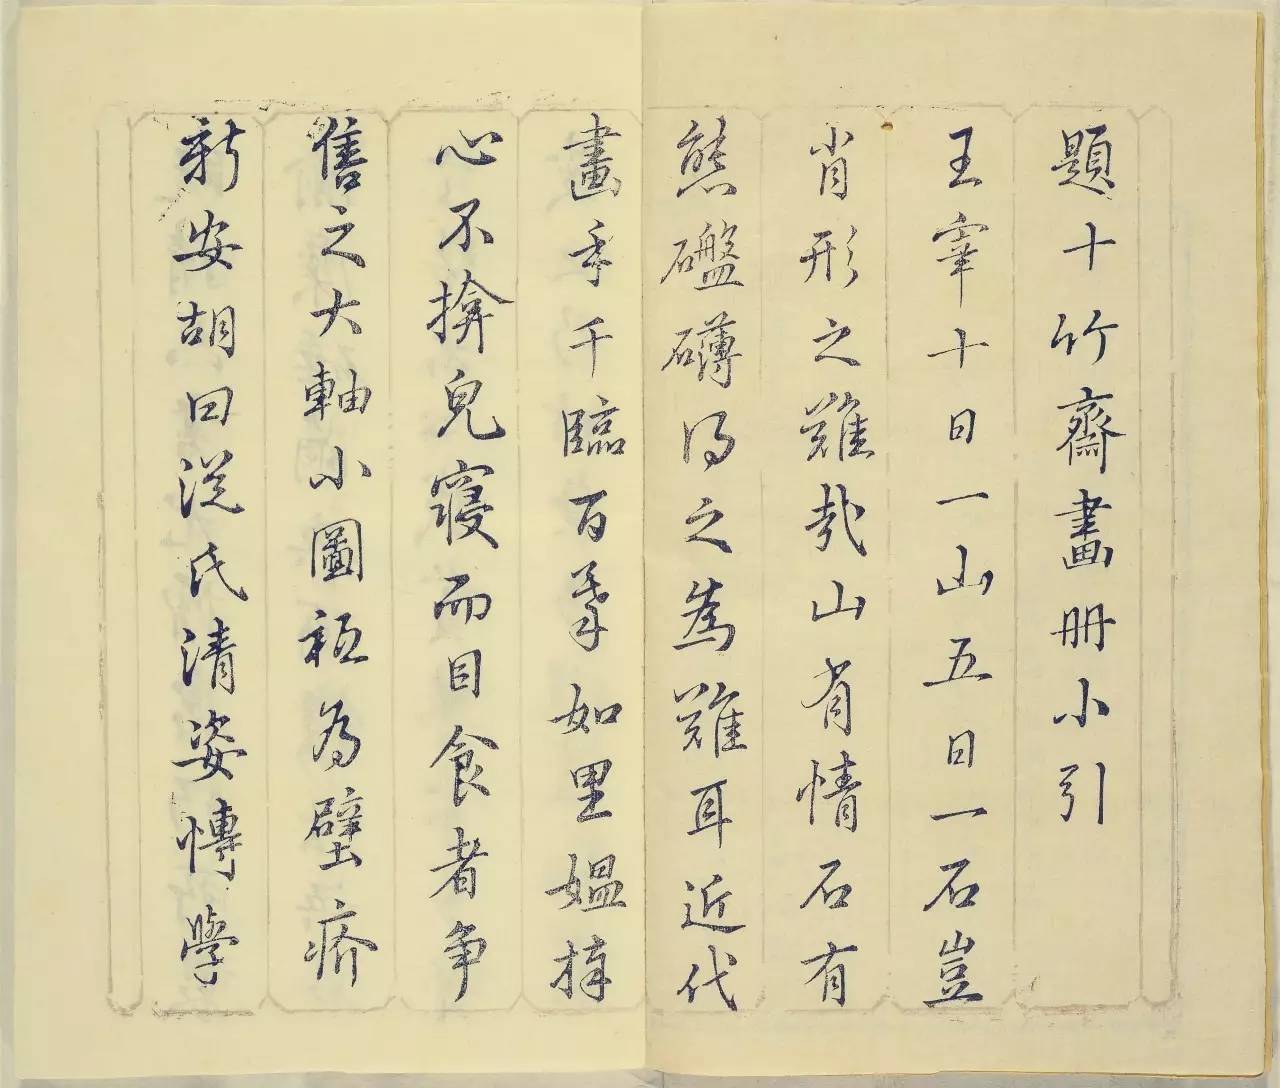 題十竹齋畫册小引
王宰十日一山五日一石豈
肖形之難哉山有情石有
態礛礴得之為難耳近代
畫手千臨百摹如里媼捧
心不揜皃寢而目食者争
售之大軸小圖秪為壁疥
新安胡曰從氏清姿博學